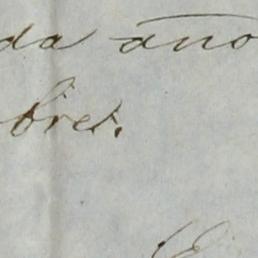 da año
bres.